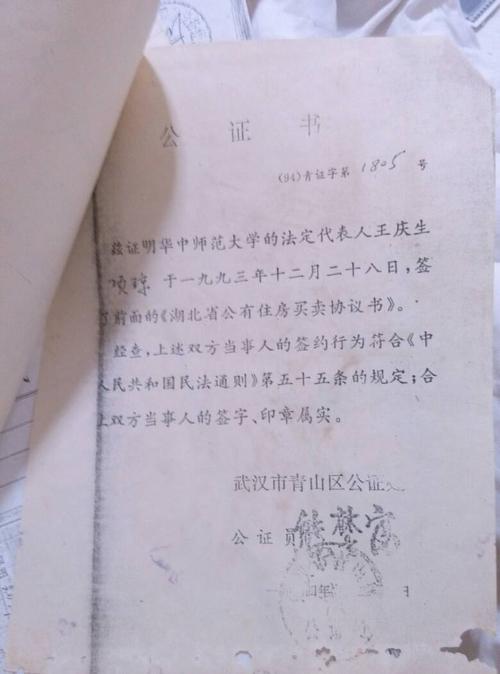 公 证 书
(94)青证字第 1805 号
兹证明华中师范大学的法定代表人王庆生
项琼 于一九九三年十二月二十八日,签
了前面的《湖北省公有住房买卖协议书》。
经查,上述双方当事人的签约行为符合《中
人民共和国民法通则》第五十五条的规定;合
上双方当事人的签字、印章属实。
武汉市青山区公证处
公 证 员
年
日